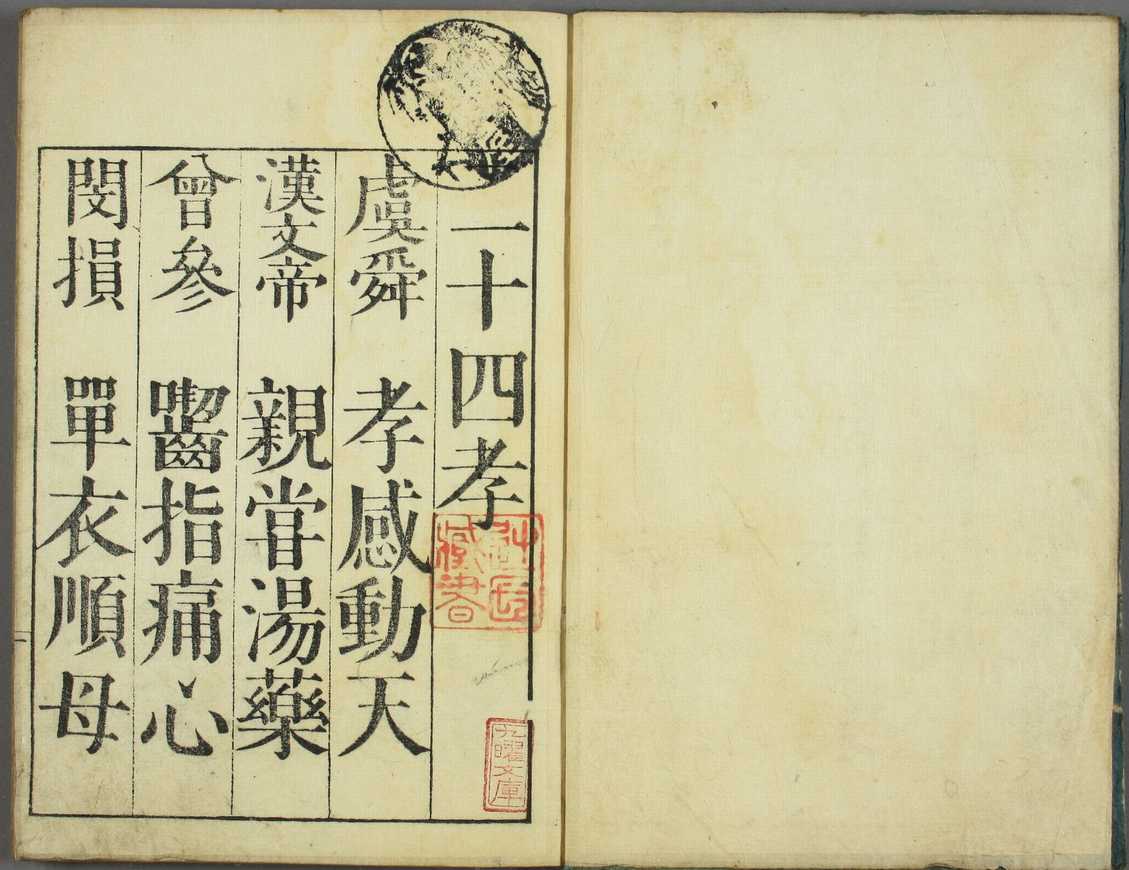 二十四孝
虞舜 孝感動天
漢文帝 親甞湯藥
曾參 囓指痛心
閔損 單衣順母
九曜文庫